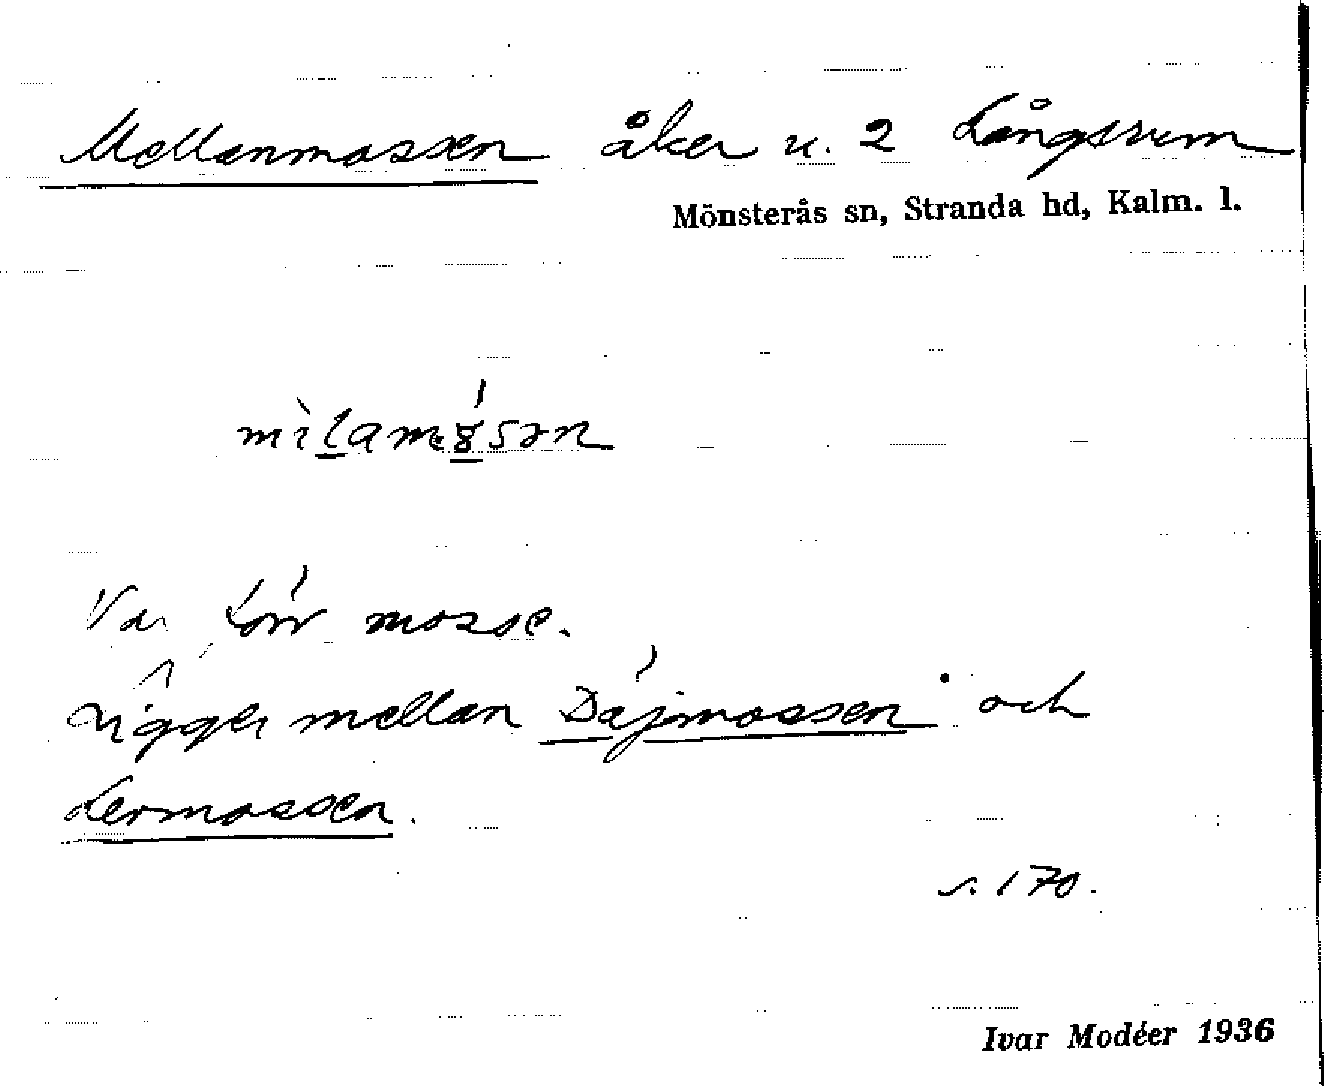 Mellanmossen åker u. 2 Långsrum
Mönsterås sn, Stranda hd, Kalm. l.
Var förr mosse.
Ligger mellan Däjmossen och
Lermossen.
s. 170.
Ivar Modéer 1936